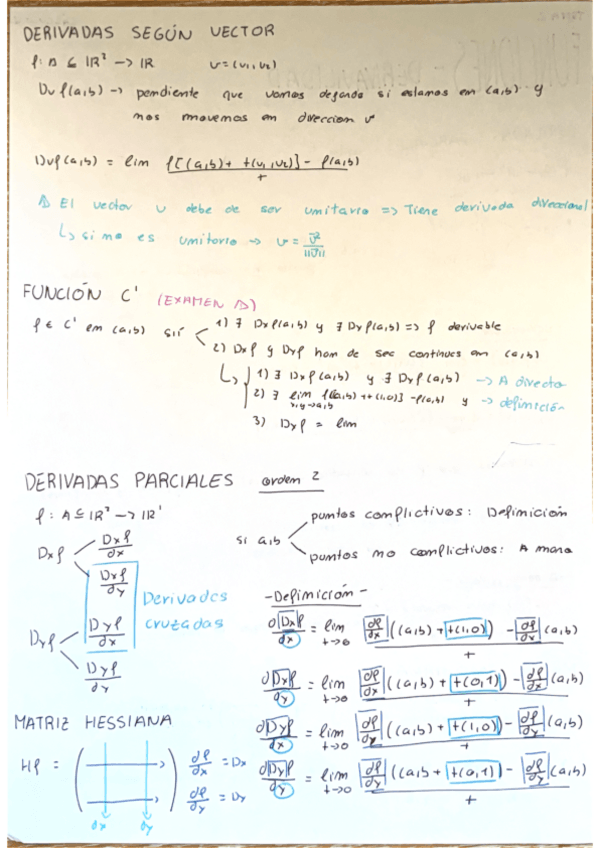 DERIVADAS SEGÚN VECTOR
f: A ⊆ IR² -> IR v = (v₁, v₂)
Dv f(a,b) -> pendiente que vamos dejando si estamos en (a,b) y
nos movemos en direccion v
Dvf(a,b) = lim f[(a,b) + t(v₁,v₂)] - f(a,b) / t
⚠ El vector v debe de ser unitario => Tiene derivada direccional
↳ si no es unitario -> v = v⃗ / ||v⃗||
FUNCIÓN C¹ (EXAMEN ⚠)
f ∈ C¹ en (a,b) sií
1) ∃ Dxf(a,b) y ∃ Dyf(a,b) => f derivable
2) Dxf y Dyf han de ser continues en (a,b)
↳ 1) ∃ Dxf(a,b) y ∃ Dyf(a,b) -> A directo
2) ∃ lim x,y->a,b f[(a,b) + t(1,0)] - f(a,b) y -> definición
3) Dxf = lim
DERIVADAS PARCIALES orden 2
f: A ⊆ IR² -> IR¹
si a,b
puntos complictivos: Definición
puntos no complictivos: A mano
Dxf
Dxf / dx
Dxf / dy
Derivades cruzadas
Dyf
Dyf / dx
Dyf / dy
- Definición -
∂Dxf / dx = lim t->0 ∂f/∂x ((a,b) + t(1,0)) - ∂f/∂x (a,b) / t
∂Dxf / dy = lim t->0 ∂f/∂x ((a,b) + t(0,1)) - ∂f/∂x (a,b) / t
∂Dyf / dx = lim t->0 ∂f/∂y ((a,b) + t(1,0)) - ∂f/∂y (a,b) / t
∂Dyf / dy = lim t->0 ∂f/∂y ((a,b + t(0,1)) - ∂f/∂y (a,b) / t
MATRIZ HESSIANA
Hf =
∂f/∂x = Dx
∂f/∂y = Dy
∂x ∂y